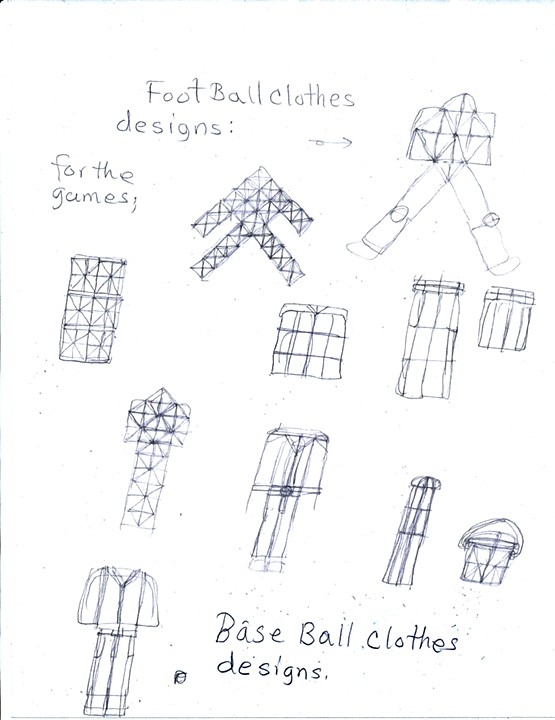 FootBall clothes
designs:
for the
games;
Base Ball clothes
designs.